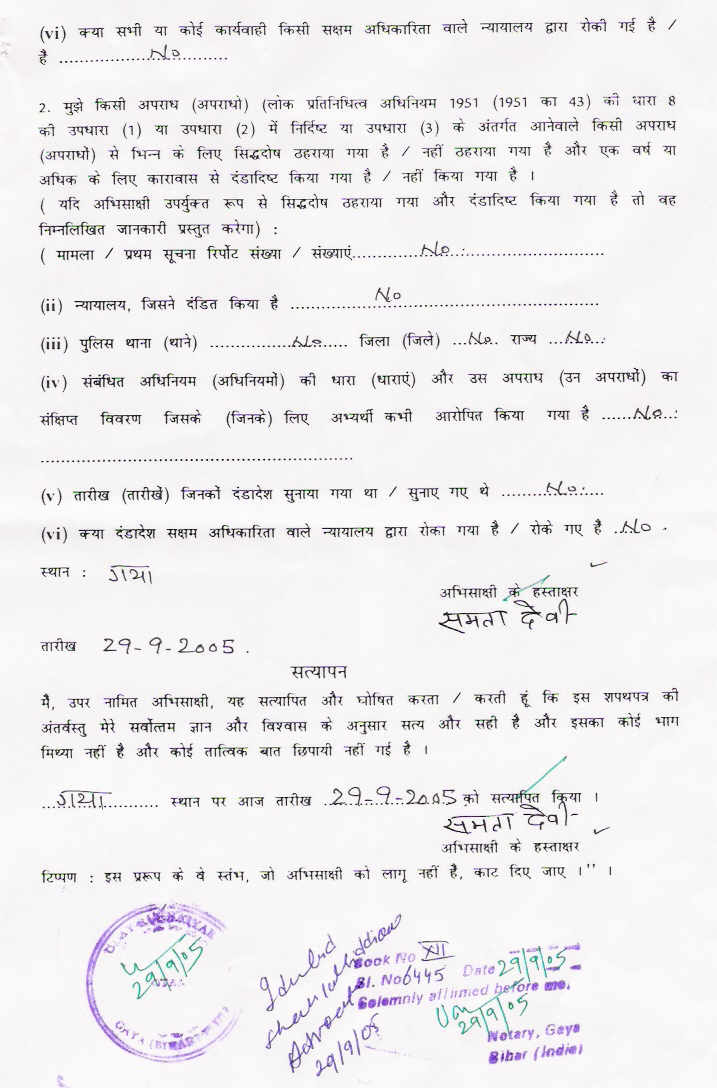 (vi) क्या सभी या कोई कार्यवाही किसी सक्षम अधिकारिता वाले न्यायालय द्वारा रोकी गई है /
है ............No............
2. मुझे किसी अपराध (अपराधो) (लोक प्रतिनिधित्व अधिनियम 1951 (1951 का 43) की धारा 8
की उपधारा (1) या उपधारा (2) में निर्दिष्ट या उपधारा (3) के अंतर्गत आनेवाले किसी अपराध
(अपराधों) से भिन्न के लिए सिद्धदोष ठहराया गया है / नहीं ठहराया गया है और एक वर्ष या
अधिक के लिए कारावास से दंडादिष्ट किया गया है / नहीं किया गया है ।
( यदि अभिसाक्षी उपर्युक्त रूप से सिद्धदोष ठहराया गया और दंडादिष्ट किया गया है तो वह
निम्नलिखित जानकारी प्रस्तुत करेगा) :
( मामला / प्रथम सूचना रिर्पोट संख्या / संख्याएं............No............
(ii) न्यायालय, जिसने दंडित किया है ............No............
(iii) पुलिस थाना (थाने) ............No...... जिला (जिले) ...No.. राज्य ...No...
(iv) संबंधित अधिनियम (अधिनियमों) की धारा (धाराएं) और उस अपराध (उन अपराधों) का
संक्षिप्त विवरण जिसके (जिनके) लिए अभ्यर्थी कभी आरोपित किया गया है ......No...
............................................................
(v) तारीख (तारीखें) जिनकों दंडादेश सुनाया गया था / सुनाए गए थे .........No......
(vi) क्या दंडादेश सक्षम अधिकारिता वाले न्यायालय द्वारा रोका गया है / रोके गए है ...No .
स्थान : गया
अभिसाक्षी के हस्ताक्षर
समता देवी
तारीख 29-9-2005 .
सत्यापन
मै, उपर नामित अभिसाक्षी, यह सत्यापित और घोषित करता / करती हूं कि इस शपथपत्र की
अंतर्वस्तु मेरे सर्वोत्तम ज्ञान और विश्वास के अनुसार सत्य और सही है और इसका कोई भाग
मिथ्या नहीं है और कोई तात्विक बात छिपायी नहीं गई है ।
...गया......... स्थान पर आज तारीख ...29-9-2005 को सत्यापित किया ।
समता देवी
अभिसाक्षी के हस्ताक्षर
टिप्पण : इस प्ररूप के वे स्तंभ, जो अभिसाक्षी को लागू नहीं है, काट दिए जाए ।'' ।
29/9/05
GAYA (BIHAR)
Advocate
29/9/05
Book No XII
Sl. No 6445 Date 29/9/05
Solemnly affirmed before me.
29/9/05
Notary, Gaya
Bihar (India)